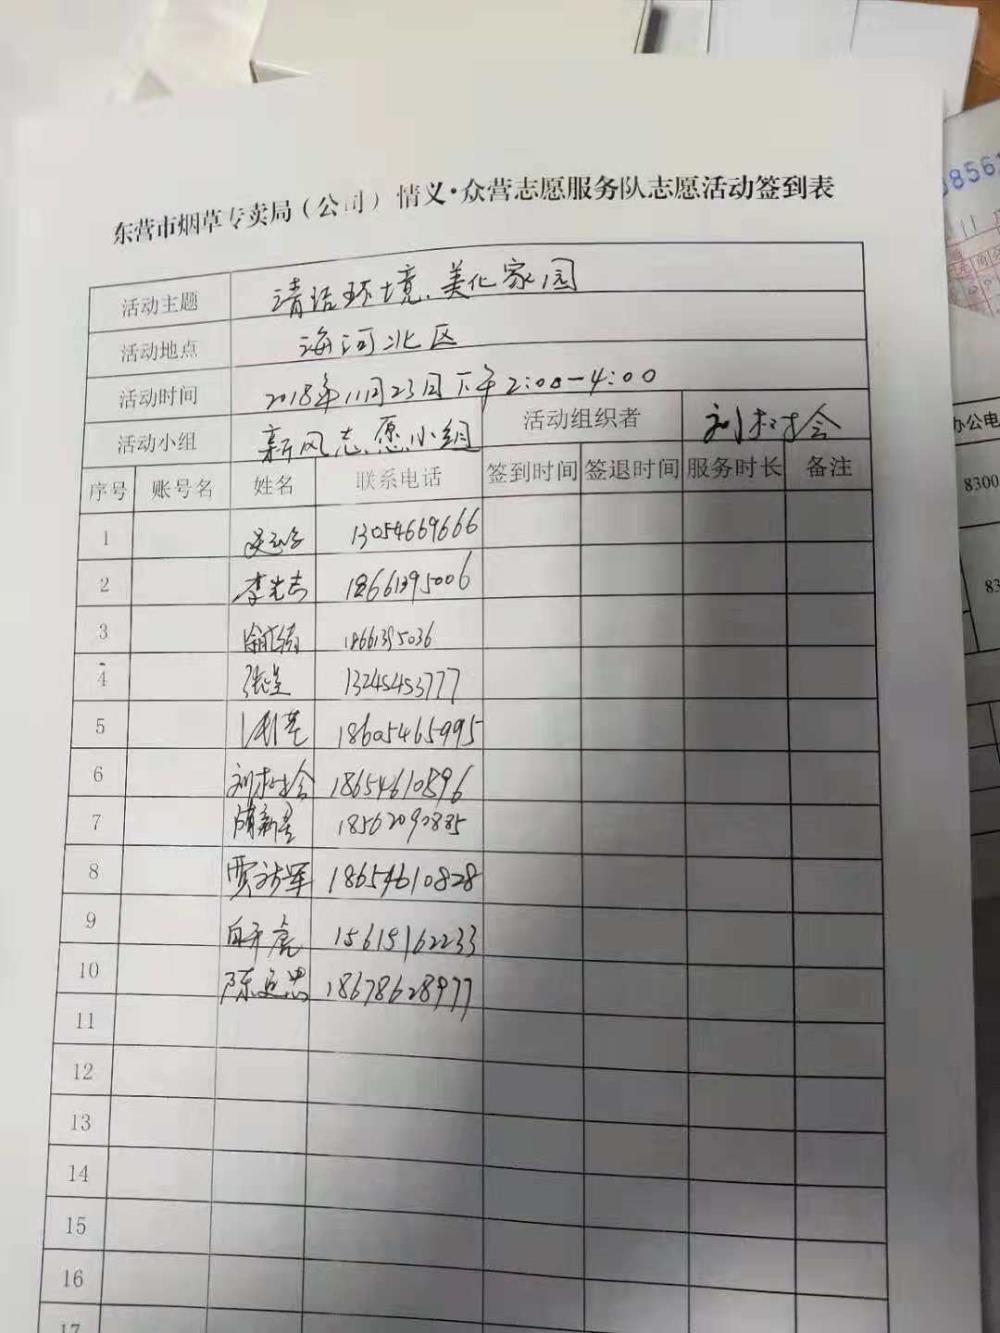 东营市烟草专卖局（公司）情义·众营志愿服务队志愿活动签到表
活动主题 清洁环境、美化家园
活动地点 海河北区
活动时间 2018年11月23日下午2:00-4:00
活动小组 新风志愿小组 活动组织者 刘树会
序号 账号名 姓名 联系电话 签到时间 签退时间 服务时长 备注
1 13054669666
2 李光吉 18661395006
3 18661395036
4 张星 13245453777
5 18605465995
6 刘树会 18654610896
7 18562090885
8 贾 军 18654610828
9 虎 15615162233
10 陈 忠 18678628977
11
12
13
14
15
16
17
办公电
8300
83